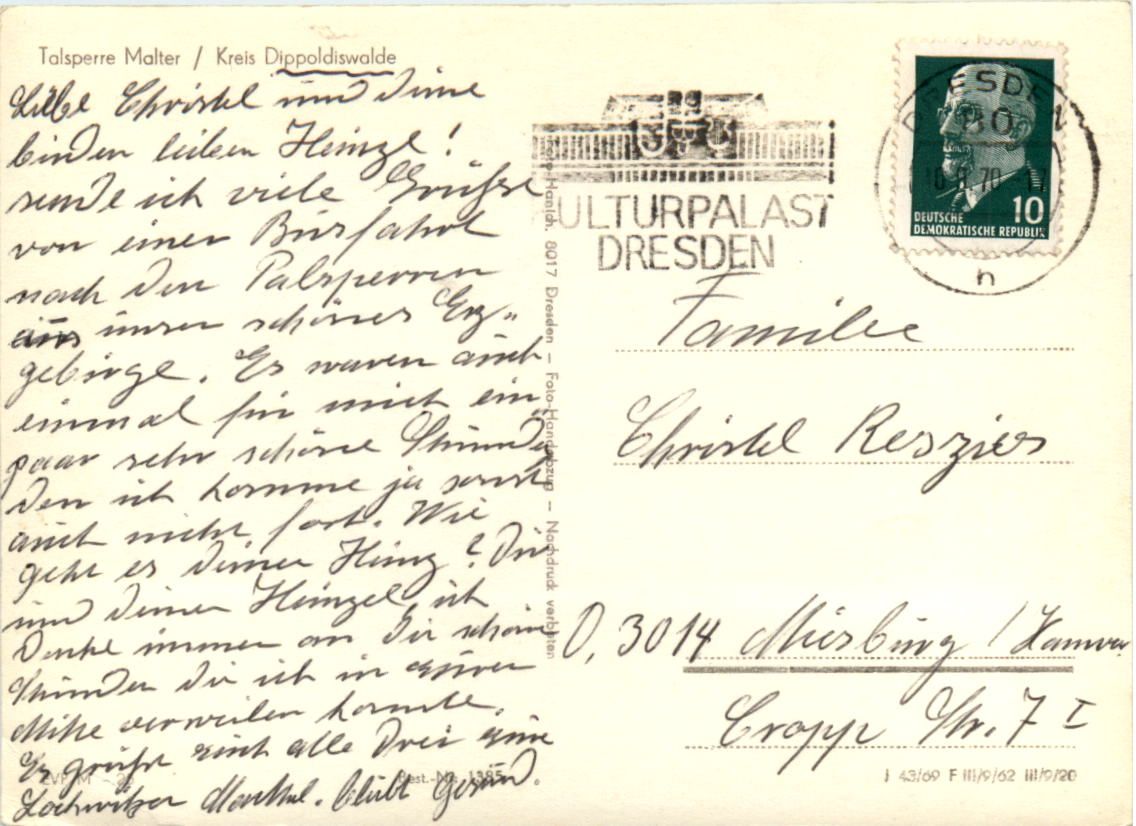 Talsperre Malter / Kreis Dippoldiswalde
Liebe Christel und Deine
beiden lieben Heinzel!
sende ich viele Grüsse
von einer Busfahrt
nach den Talsperren
aus unser schönes Erz-
gebirge. Es waren auch
einmal für mich ein
paar sehr schöne Stunden
den ich komme ja sonst
auch nicht fort. Wie
geht es Deinen Heinz? Dir
und Deinen Heinzel, ich
Denke immer an Die schöne
Stunden Die ich in Eurer
Mitte verweilen konnte.
Es grüßt Euch alle Drei Eure
Lochwitzer. bleibt Gesund.
Hanich, 8017 Dresden – Foto-Handabzug – Nachdruck verboten
Best.-Nr. 1385
KULTURPALAST
DRESDEN
DRESDEN
70
h
10
DEUTSCHE
DEMOKRATISCHE REPUBLIK
Familie
Christel
D, 3014 Misburg / Hannover
Cropp Str. 7 I
J 43/69 F III/9/62 III/9/20